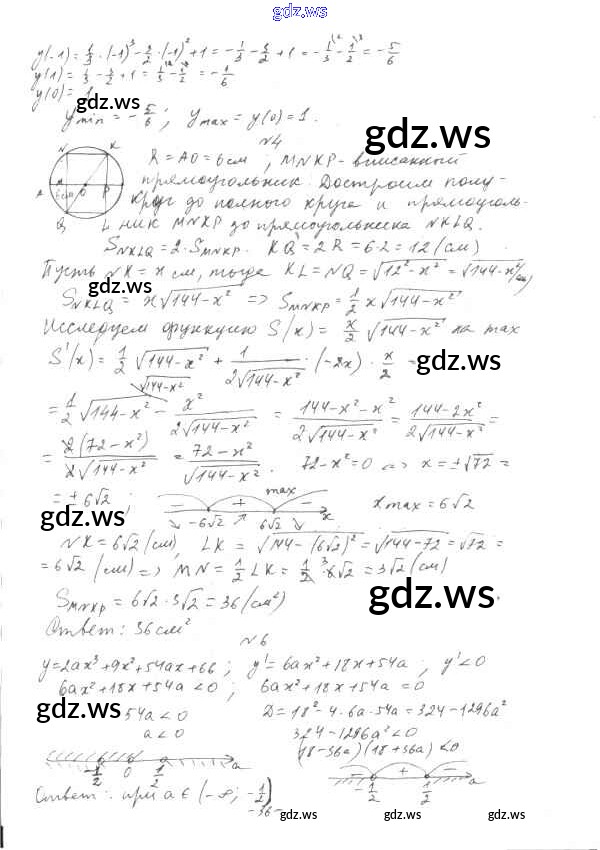 gdz.ws
y(-1) = 1/3 · (-1)³ - 3/2 · (-1)² + 1 = -1/3 - 3/2 + 1 = -1/3 - 1/2 = -5/6
y(1) = 1/3 - 3/2 + 1 = 1/3 - 1/2 = -1/6
y(0) = 1
gdz.ws
y min = -5/6; y max = y(0) = 1.
gdz.ws
N4
R = AO = 6 см; MNKP - вписанный
прямоугольник. Достроим полу-
круг до полного круга и прямоуголь-
ник MNKP до прямоугольника NKLQ.
N K A M 6см O P Q L
S NKLQ = 2 · S MNKP. KQ = 2R = 6·2 = 12 (см)
Пусть NK = x см, тогда KL = NQ = √12² - x² = √144-x² (см)
gdz.ws
S NKLQ = x√144-x² => S MNKP = 1/2 x√144-x²
Исследуем функцию S(x) = x/2 √144-x² на max
S'(x) = 1/2 √144-x² + 1/2√144-x² · (-2x) · x/2 =
gdz.ws
= 1/2 √144-x² - x²/2√144-x² = 144-x²-x²/2√144-x² = 144-2x²/2√144-x² =
= 2(72-x²)/2√144-x² = 72-x²/√144-x². 72-x²=0 <=> x = ±√72 =
= ±6√2; - + max - x max = 6√2
-6√2 6√2 x
gdz.ws
NK = 6√2 (см), LK = √144-(6√2)² = √144-72 = √72 =
= 6√2 (см) => MN = 1/2 LK = 1/2 · 6√2 = 3√2 (см)
gdz.ws
S MNKP = 6√2 · 3√2 = 36 (см²)
Ответ: 36 см²
N6
y = 2ax³+9x²+54ax+66; y' = 6ax²+18x+54a; y'<0
6ax²+18x+54a<0; 6ax²+18x+54a=0
gdz.ws
54a<0 D = 18²-4·6a·54a = 324-1296a²
a<0 324-1296a²<0
(18-36a)(18+36a)<0
-1/2 0 1/2 a
- + -
-1/2 1/2
gdz.ws
Ответ: при a ∈ (-∞; -1/2)
-36-
gdz.ws
gdz.ws
gdz.ws